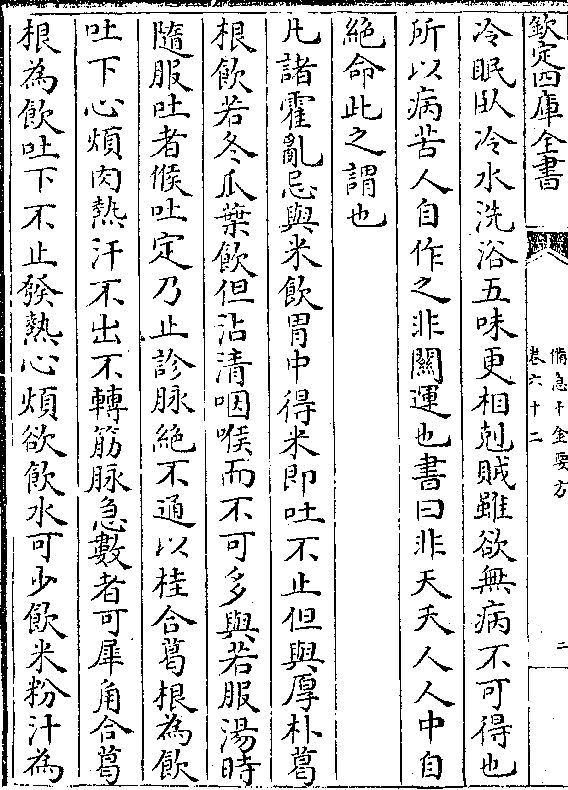 欽定四庫全書
備急千金要方
卷六十二
二
冷眠臥冷水洗浴五味更相剋賊雖欲無病不可得也
所以病苦人自作之非關運也書曰非天夭人人中自
絕命此之謂也
凡諸霍亂忌與米飲胃中得米即吐不止但與厚朴葛
根飲若冬瓜葉飲但沾清咽喉而不可多與若服湯時
隨服吐者候吐定乃止診脉絕不通以桂合葛根為飲
吐下心煩内熱汗不出不轉筋脉急數者可犀角合葛
根為飲吐下不止發熱心煩欲飲水可少飲米粉汁為